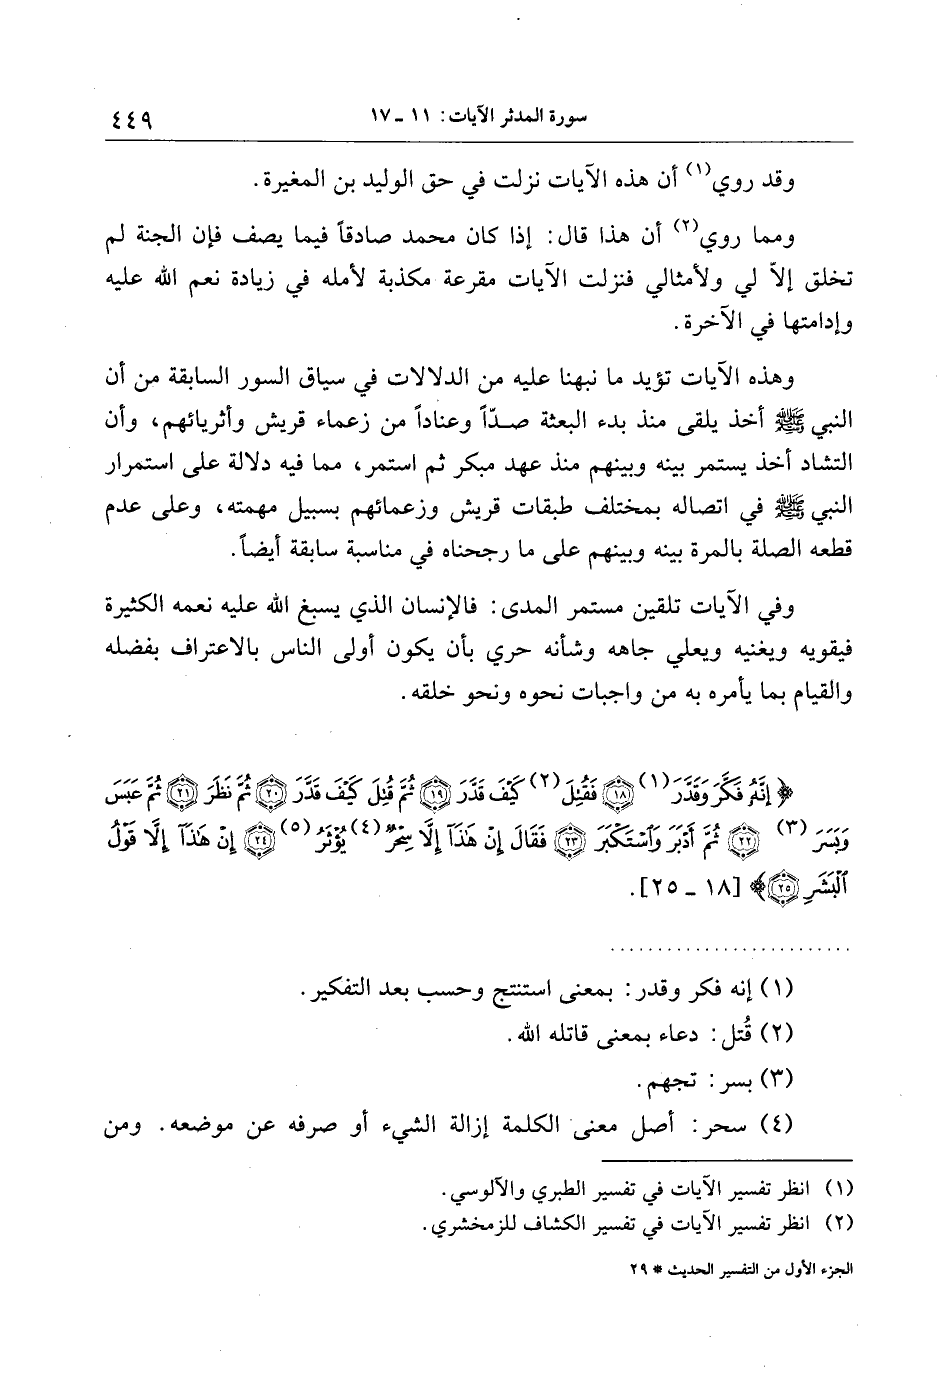 سورة المدثر الآيات: ١١ ـ ١٧
٤٤٩
وقد روي(١) أن هذه الآيات نزلت في حق الوليد بن المغيرة.
ومما روي(٢) أن هذا قال: إذا كان محمد صادقاً فيما يصف فإن الجنة لم
تخلق إلاّ لي ولأمثالي فنزلت الآيات مقرعة مكذبة لأمله في زيادة نعم الله عليه
وإدامتها في الآخرة.
وهذه الآيات تؤيد ما نبهنا عليه من الدلالات في سياق السور السابقة من أن
النبي ﷺ أخذ يلقى منذ بدء البعثة صدّاً وعناداً من زعماء قريش وأثريائهم، وأن
التشاد أخذ يستمر بينه وبينهم منذ عهد مبكر ثم استمر، مما فيه دلالة على استمرار
النبي ﷺ في اتصاله بمختلف طبقات قريش وزعمائهم بسبيل مهمته، وعلى عدم
قطعه الصلة بالمرة بينه وبينهم على ما رجحناه في مناسبة سابقة أيضاً.
وفي الآيات تلقين مستمر المدى: فالإنسان الذي يسبغ الله عليه نعمه الكثيرة
فيقويه ويغنيه ويعلي جاهه وشأنه حري بأن يكون أولى الناس بالاعتراف بفضله
والقيام بما يأمره به من واجبات نحوه ونحو خلقه.
﴿ إِنَّهُ فَكَّرَ وَقَدَّرَ(١) ١٨ فَقُتِلَ(٢) كَيْفَ قَدَّرَ ١٩ ثُمَّ قُتِلَ كَيْفَ قَدَّرَ ٢٠ ثُمَّ نَظَرَ ٢١ ثُمَّ عَبَسَ
وَبَسَرَ(٣) ٢٢ ثُمَّ أَدْبَرَ وَٱسْتَكْبَرَ ٢٣ فَقَالَ إِنْ هَٰذَآ إِلَّا سِحْرٌ(٤) يُؤْثَرُ(٥) ٢٤ إِنْ هَٰذَآ إِلَّا قَوْلُ
ٱلْبَشَرِ ٢٥ ﴾ [١٨ ـ ٢٥].
(١) إنه فكر وقدر: بمعنى استنتج وحسب بعد التفكير.
(٢) قُتل: دعاء بمعنى قاتله الله.
(٣) بسر: تجهم.
(٤) سحر: أصل معنى الكلمة إزالة الشيء أو صرفه عن موضعه. ومن
(١) انظر تفسير الآيات في تفسير الطبري والآلوسي.
(٢) انظر تفسير الآيات في تفسير الكشاف للزمخشري.
الجزء الأول من التفسير الحديث * ٢٩